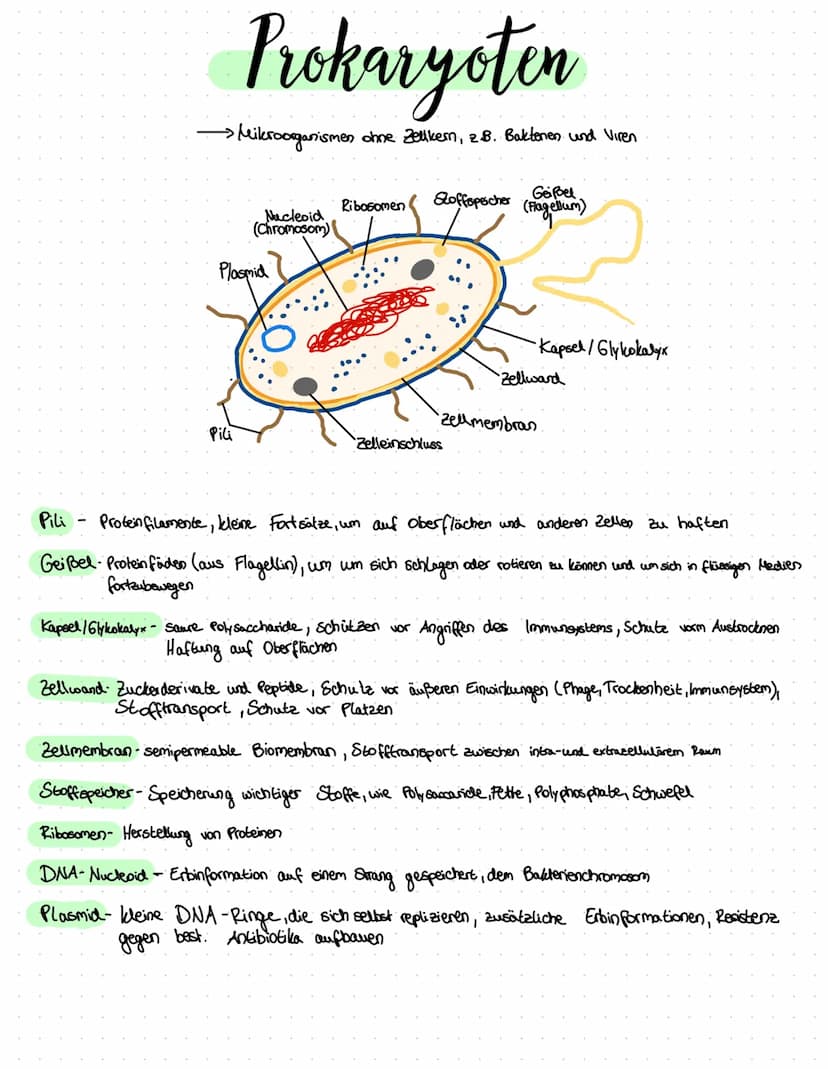 Prokaryoten
→ Mikroorganismen ohne Zellkern, z.B. Bakterien und Viren
Ribosomen
Stoffspeicher
Geißel
(Flagellum)
Nucleoid
(Chromosom)
Plasmid
Kapsel / Glykokalyx
Zellwand
Zellmembran
Pili
Zelleinschluss
Pili - Proteinfilamente, kleine Fortsätze, um auf Oberflächen und anderen Zellen zu haften
Geißel - Proteinfäden (aus Flagellin), um um sich schlagen oder rotieren zu können und um sich in flüssigen Medien
fortzubewegen
Kapsel/Glykokalyx - saure Polysaccharide, schützen vor Angriffen des Immunsystems, Schutz vorm Austrocknen
Haftung auf Oberflächen
Zellwand - Zuckerderivate und Peptide, Schutz vor äußeren Einwirkungen (Phage, Trockenheit, Immunsystem),
Stofftransport, Schutz vor Platzen
Zellmembran - semipermeable Biomembran, Stofftransport zwischen intra- und extrazellulärem Raum
Stoffspeicher - Speicherung wichtiger Stoffe, wie Polysaccaride, Fette, Polyphosphate, Schwefel
Ribosomen - Herstellung von Proteinen
DNA-Nucleoid - Erbinformation auf einem Strang gespeichert, dem Bakterienchromosom
Plasmid - kleine DNA-Ringe, die sich selbst replizieren, zusätzliche Erbinformationen, Resistenz
gegen best. Antibiotika aufbauen